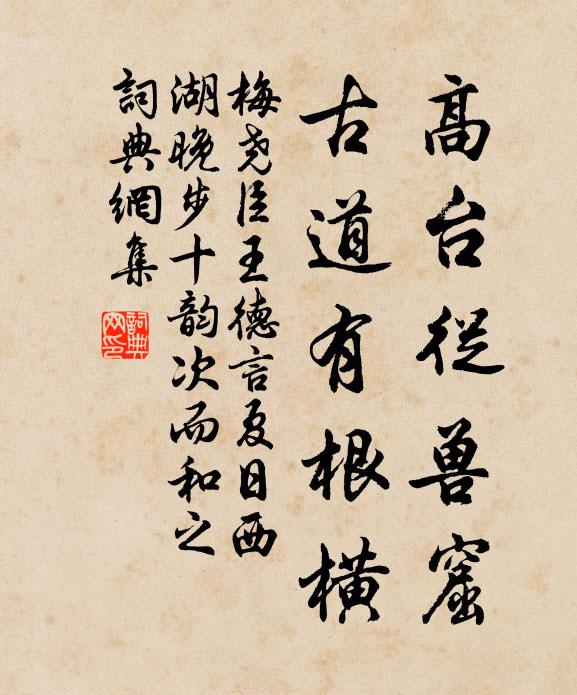 高台從兽窟
古道有根橫
梅尧臣王德言夏日西
湖晚步十韵次而和之
詞典網集
詞典
网印